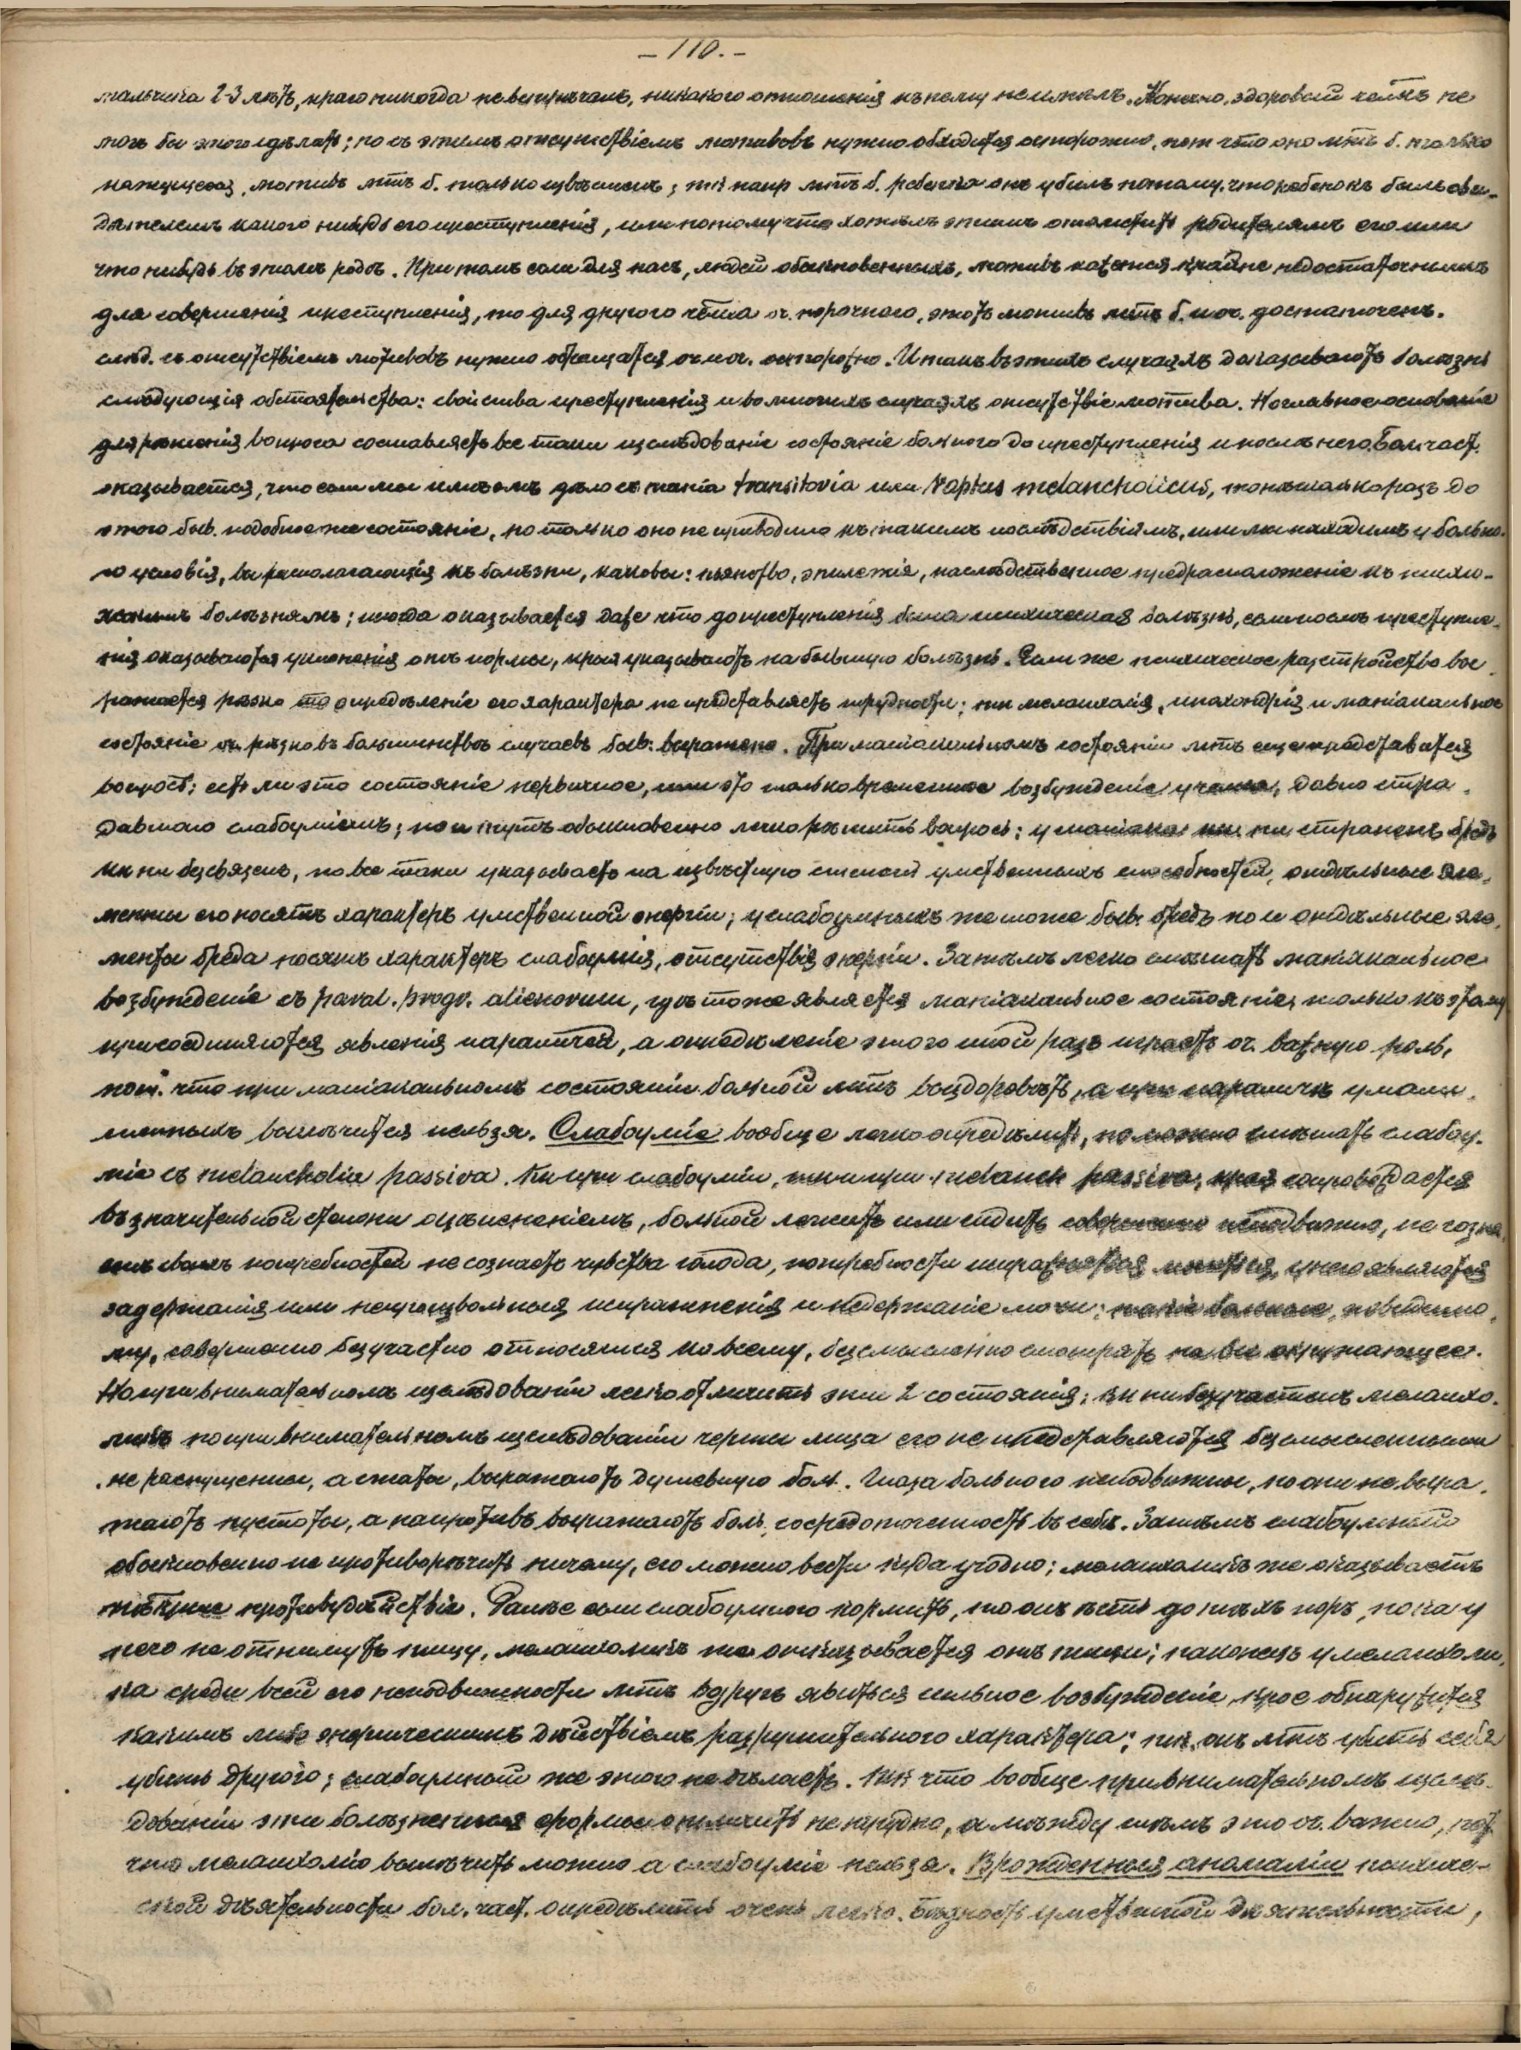 — 110. —
мальчика 2-3 лѣтъ, краго никогда не встрѣчалъ, никакого отношенія къ нему не имѣлъ. Конечно, здоровый челкъ не
могъ бы этого сдѣлать; но съ этимъ отсутствіемъ мотивовъ нужно обходиться осторожно, пот. что оно мтъ б. только
кажущееся, мотивъ мтъ б. только неизвѣстенъ; тк напр мтъ б. ребенка онъ убилъ потому, что ребенокъ былъ сви-
дѣтелемъ какого нибудь его преступленія, или потому что хотѣлъ этимъ отомстить родителямъ его или
что нибудь въ этомъ родѣ. При томъ если для насъ, людей обыкновенныхъ, мотивъ кажется крайне недостаточнымъ
для совершенія преступленія, то для другого члка оч. порочнаго, этотъ мотивъ мтъ б. и оч. достаточенъ.
слѣд. съ отсутствіемъ мотивовъ нужно обращаться очень осторожно. Итакъ въ этихъ случаяхъ доказываютъ болѣзнь
слѣдующія обстоятельства: свойства преступленія и во многихъ случаяхъ отсутствіе мотива. Но главное основаніе
для рѣшенія вопроса составляетъ все таки изслѣдованіе состоянія больного до преступленія и послѣ него. Бол. част.
оказывается, что если мы имѣемъ дѣло съ mania transitoria или raptus melancholicus, то нѣсколько разъ до
этого быв. подобное же состояніе, но только оно не приводило къ такимъ послѣдствіямъ, или мы находимъ у больно-
го условія, располагающія къ болѣзни, каковы: пьянство, эпилепсія, наслѣдственное предрасположеніе къ психи-
ческимъ болѣзнямъ; иногда оказывается даже что до преступленія была психическая болѣзнь, если послѣ преступле-
нія оказываются уклоненія отъ нормы, крыя указываютъ на бывшую болѣзнь. Если же психическое разстройство вы-
ражается рѣзко то опредѣленіе его характера не представляетъ трудности; тк меланхолія, ипохондрія и маніакальное
состояніе оч. рѣзко въ большинствѣ случаевъ быв. выражено. При маніакальномъ состояніи мтъ еще представиться
вопросъ: есть ли это состояніе первичное, или это только временное возбужденіе у члка, давно стра-
давшаго слабоуміемъ; но и тутъ обыкновенно легко рѣшить вопросъ: у маніака кк ни страненъ бредъ
кк ни безсвязенъ, но все таки указываетъ на извѣстную степень умственныхъ способностей, отдѣльные эле-
менты его носятъ характеръ умственной энергіи; у слабоумныхъ же тоже быв. бредъ но и отдѣльные эле-
менты бреда носятъ характеръ слабоумія, отсутствія энергіи. Затѣмъ легко смѣшать маніакальное
возбужденіе съ paral. progr. alienorum, гдѣ тоже является маніакальное состояніе, только къ этому
присоединяются явленія параличей, а опредѣленіе этого иной разъ играетъ оч. важную роль,
пот. что при маніакальномъ состояніи больной мтъ выздоровѣть, а при параличѣ умали-
шенныхъ вылѣчиться нельзя. Слабоуміе вообще легко опредѣлить, но можно смѣшать слабоу-
міе съ melancholia passiva. Кк при слабоуміи, тк и при melanch. passiva, края сопровождается
въ значительной степени оцѣпенѣніемъ, больной лежитъ или сидитъ совершенно неподвижно, не созна-
етъ своихъ потребностей не сознаетъ чувства голода, потребности испражняться мочиться, у него являются
задержанія или непроизвольныя испражненія и недержаніе мочи; такіе больные, повидимо-
му, совершенно безучастно относятся ко всему, безсмысленно смотрятъ на все окружающее.
Но при внимательномъ изслѣдованіи легко отличить эти 2 состоянія; кк ни безучастенъ меланхо-
ликъ но при внимательномъ изслѣдованіи черты лица его не представляются безсмысленными
не распущены, а сжаты, выражаютъ душевную боль. Глаза больного неподвижны, но они не выра-
жаютъ пустоты, а напротивъ выражаютъ боль, сосредоточенность въ себѣ. Затѣмъ слабоумный
обыкновенно не противорѣчитъ ничему, его можно вести куда угодно; меланхоликъ же оказываетъ
противудѣйствіе. Далѣе если слабоумнаго кормить, то онъ ѣстъ до тѣхъ поръ, пока у
него не отнимутъ пищу, меланхоликъ же отказывается отъ пищи; наконецъ у меланхоли-
ка среди всей его неподвижности мтъ вдругъ явиться сильное возбужденіе, крое обнаружится
какимъ либо энергическимъ дѣйствіемъ, разрушительнаго характера; тк. онъ мтъ убить себя
убить другого; слабоумный же этого не дѣлаетъ. Тк что вообще при внимательномъ изслѣ-
дованіи эти болѣзненныя формы отличить не трудно, а между тѣмъ это оч. важно, пот.
что меланхолію вылѣчить можно а слабоуміе нельзя. Врожденныя аномаліи психиче-
ской дѣятельности бол. част. опредѣлить очень легко. Бѣдность умственной дѣятельности,